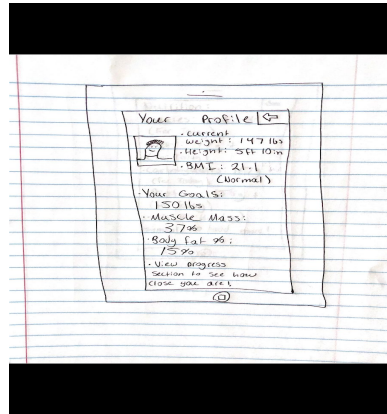 Your Profile
• Current
weight: 147 lbs
• Height: 5ft 10in
• BMI: 21.1
(Normal)
• Your Goals:
150 lbs
• Muscle Mass:
37%
• Body fat %:
15%
• View progress
section to see how
close you are!